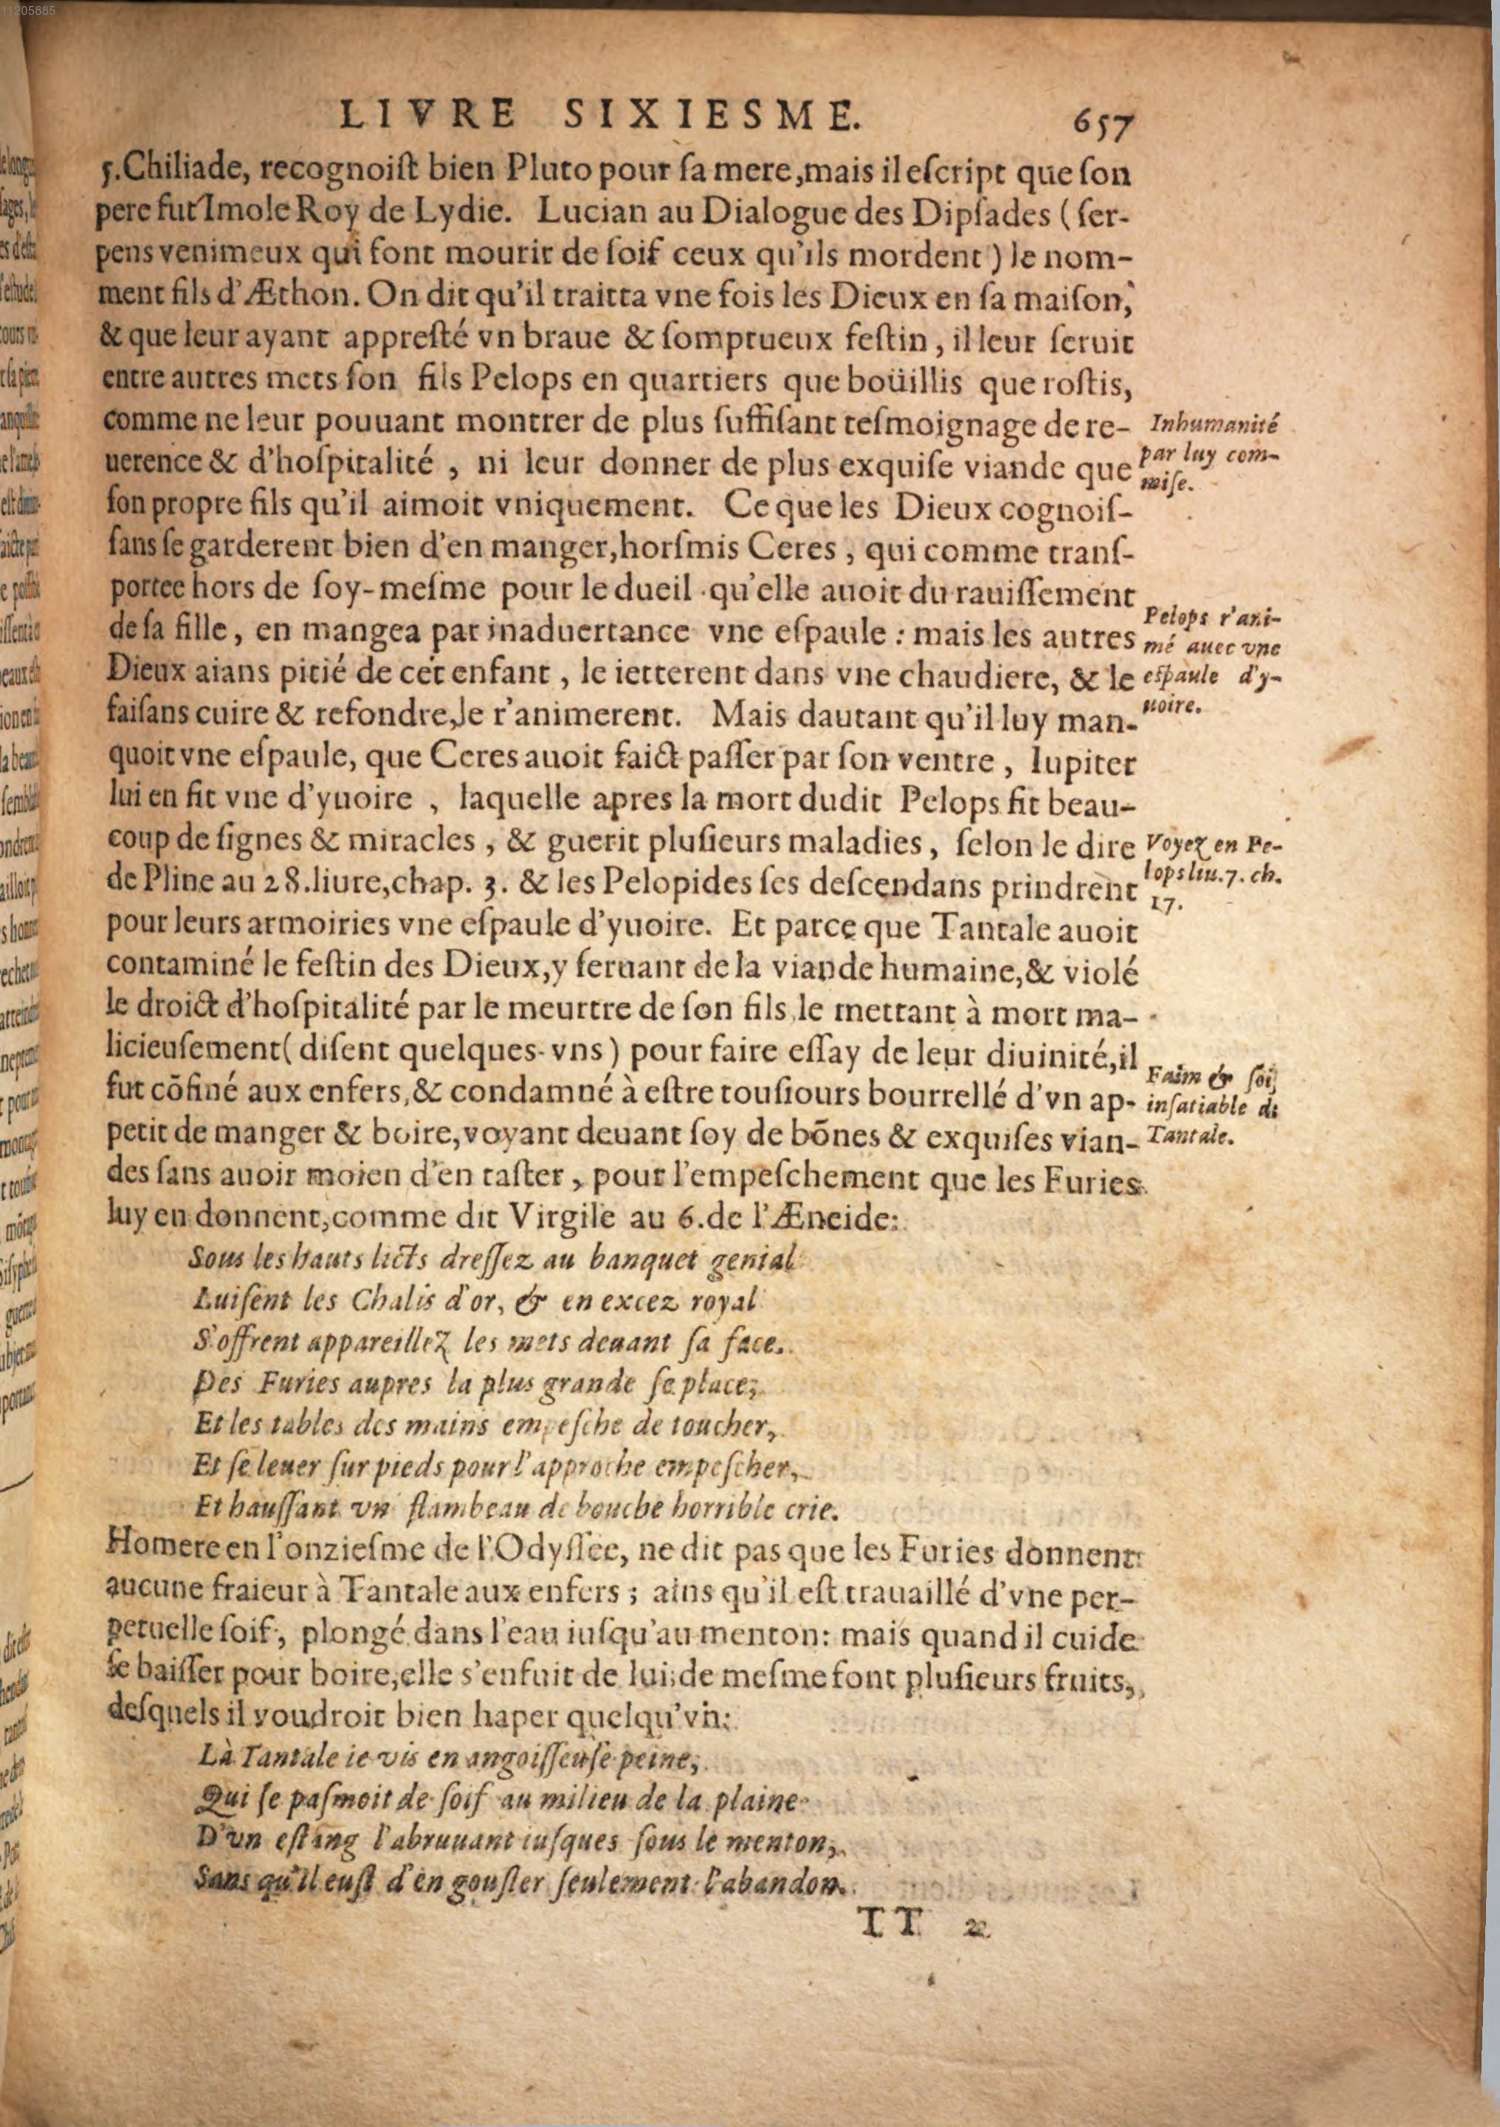 11205685
LIVRE SIXIESME. 657
5.Chiliade, recognoiſt bien Pluto pour ſa mere,mais il eſcript que ſon
pere fut Imole Roy de Lydie. Lucian au Dialogue des Dipſades (ſer-
pens venimeux qui font mourir de ſoif ceux qu'ils mordent) le nom-
ment fils d'Æthon. On dit qu'il traitta vne fois les Dieux en ſa maiſon,
& que leur ayant appreſté vn braue & ſomptueux feſtin, il leur ſeruit
entre autres mets ſon fils Pelops en quartiers que boüillis que roſtis,
comme ne leur pouuant montrer de plus ſuffiſant teſmoignage de re-
uerence & d'hoſpitalité, ni leur donner de plus exquiſe viande que
ſon propre fils qu'il aimoit vniquement. Ce que les Dieux cognoiſ-
ſans ſe garderent bien d'en manger,horſmis Ceres, qui comme tranſ-
portee hors de ſoy-meſme pour le dueil qu'elle auoit du rauiſſement
de ſa fille, en mangea par inaduertance vne eſpaule: mais les autres
Dieux aians pitié de cét enfant, le ietterent dans vne chaudiere, & le
faiſans cuire & refondre,le r'animerent. Mais dautant qu'il luy man-
quoit vne eſpaule, que Ceres auoit faict paſſer par ſon ventre, Iupiter
lui en fit vne d'yuoire, laquelle apres la mort dudit Pelops fit beau-
coup de ſignes & miracles, & guerit pluſieurs maladies, ſelon le dire
de Pline au 28.liure,chap. 3. & les Pelopides ſes deſcendans prindrent
pour leurs armoiries vne eſpaule d'yuoire. Et parce que Tantale auoit
contaminé le feſtin des Dieux,y ſeruant de la viande humaine,& violé
le droict d'hoſpitalité par le meurtre de ſon fils le mettant à mort ma-
licieuſement(diſent quelques-vns) pour faire eſſay de leur diuinité,il
fut cõfiné aux enfers,& condamné à eſtre touſiours bourrellé d'vn ap-
petit de manger & boire,voyant deuant ſoy de bõnes & exquiſes vian-
des ſans auoir moien d'en taſter, pour l'empeſchement que les Furies
luy en donnent,comme dit Virgile au 6.de l'Æneide:
Sous les hauts licts dreſſez au banquet genial
Luiſent les Chalis d'or, & en excez royal
S'offrent appareillez les mets deuant ſa face.
Des Furies aupres la plus grande ſe place;
Et les tables des mains empeſche de toucher,
Et ſe leuer ſur pieds pour l'approche empeſcher,
Et hauſſant vn flambeau de bouche horrible crie.
Homere en l'onzieſme de l'Odyſſée, ne dit pas que les Furies donnent
aucune fraieur à Tantale aux enfers; ains qu'il eſt trauaillé d'vne per-
petuelle ſoif, plongé dans l'eau iuſqu'au menton: mais quand il cuide
ſe baiſſer pour boire,elle s'enfuit de lui;de meſme font pluſieurs fruits,
deſquels il voudroit bien haper quelqu'vn:
Là Tantale ie vis en angoiſſeuſe peine,
Qui ſe paſmoit de ſoif au milieu de la plaine
D'vn eſtang l'abruuant iuſques ſous le menton,
Sans qu'il euſt d'en gouſter ſeulement l'abandon.
TT 2
Inhumanité
par luy com-
miſe.
Pelops r'ani-
mé auec vne
eſpaule d'y-
uoire.
Voyez en Pe-
lops liu.7. ch.
17.
Faim & ſoif
inſatiable de
Tantale.